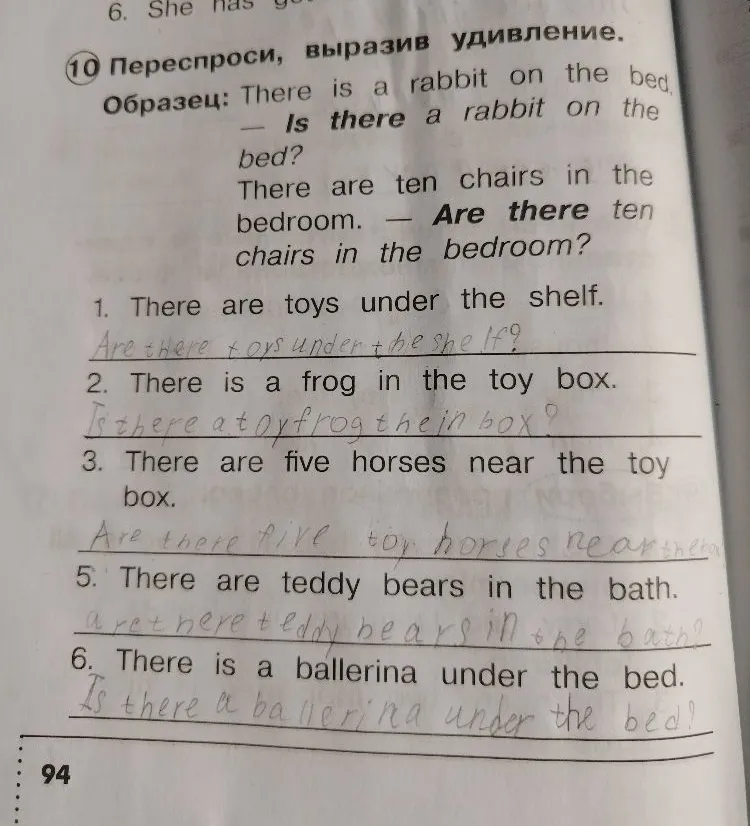 6. She has
10 Переспроси, выразив удивление.
Образец: There is a rabbit on the bed.
— Is there a rabbit on the
bed?
There are ten chairs in the
bedroom. — Are there ten
chairs in the bedroom?
1. There are toys under the shelf.
Are there toys under the shelf?
2. There is a frog in the toy box.
Is there a toy frog the in box?
3. There are five horses near the toy
box.
Are there five toy horses near the
5. There are teddy bears in the bath.
are there teddy bears in the bath?
6. There is a ballerina under the bed.
Is there a ballerina under the bed?
94